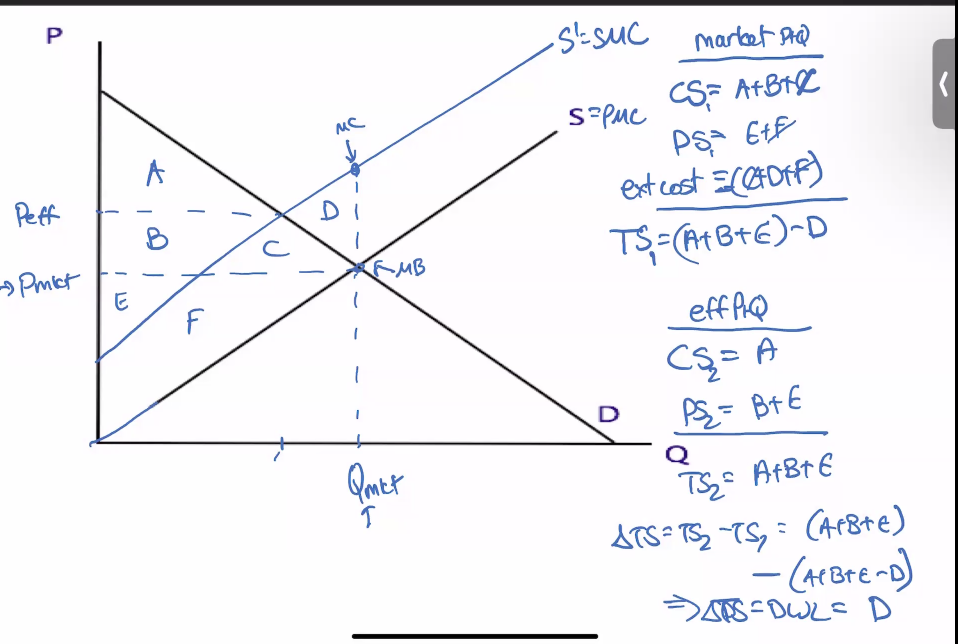 P
S'=SMC
S=PMC
MC
A
Peff
D
B
C
→Pmkt
←MB
E
F
D
Q
Qmkt
↑
market P+Q
CS₁= A+B+C
PS₁= E+F
ext cost =-(C+D+F)
TS₁=(A+B+E)-D
eff P+Q
CS₂= A
PS₂= B+E
TS₂= A+B+E
ΔTS=TS₂-TS₁= (A+B+E)
-(A+B+E-D)
=DWL= D